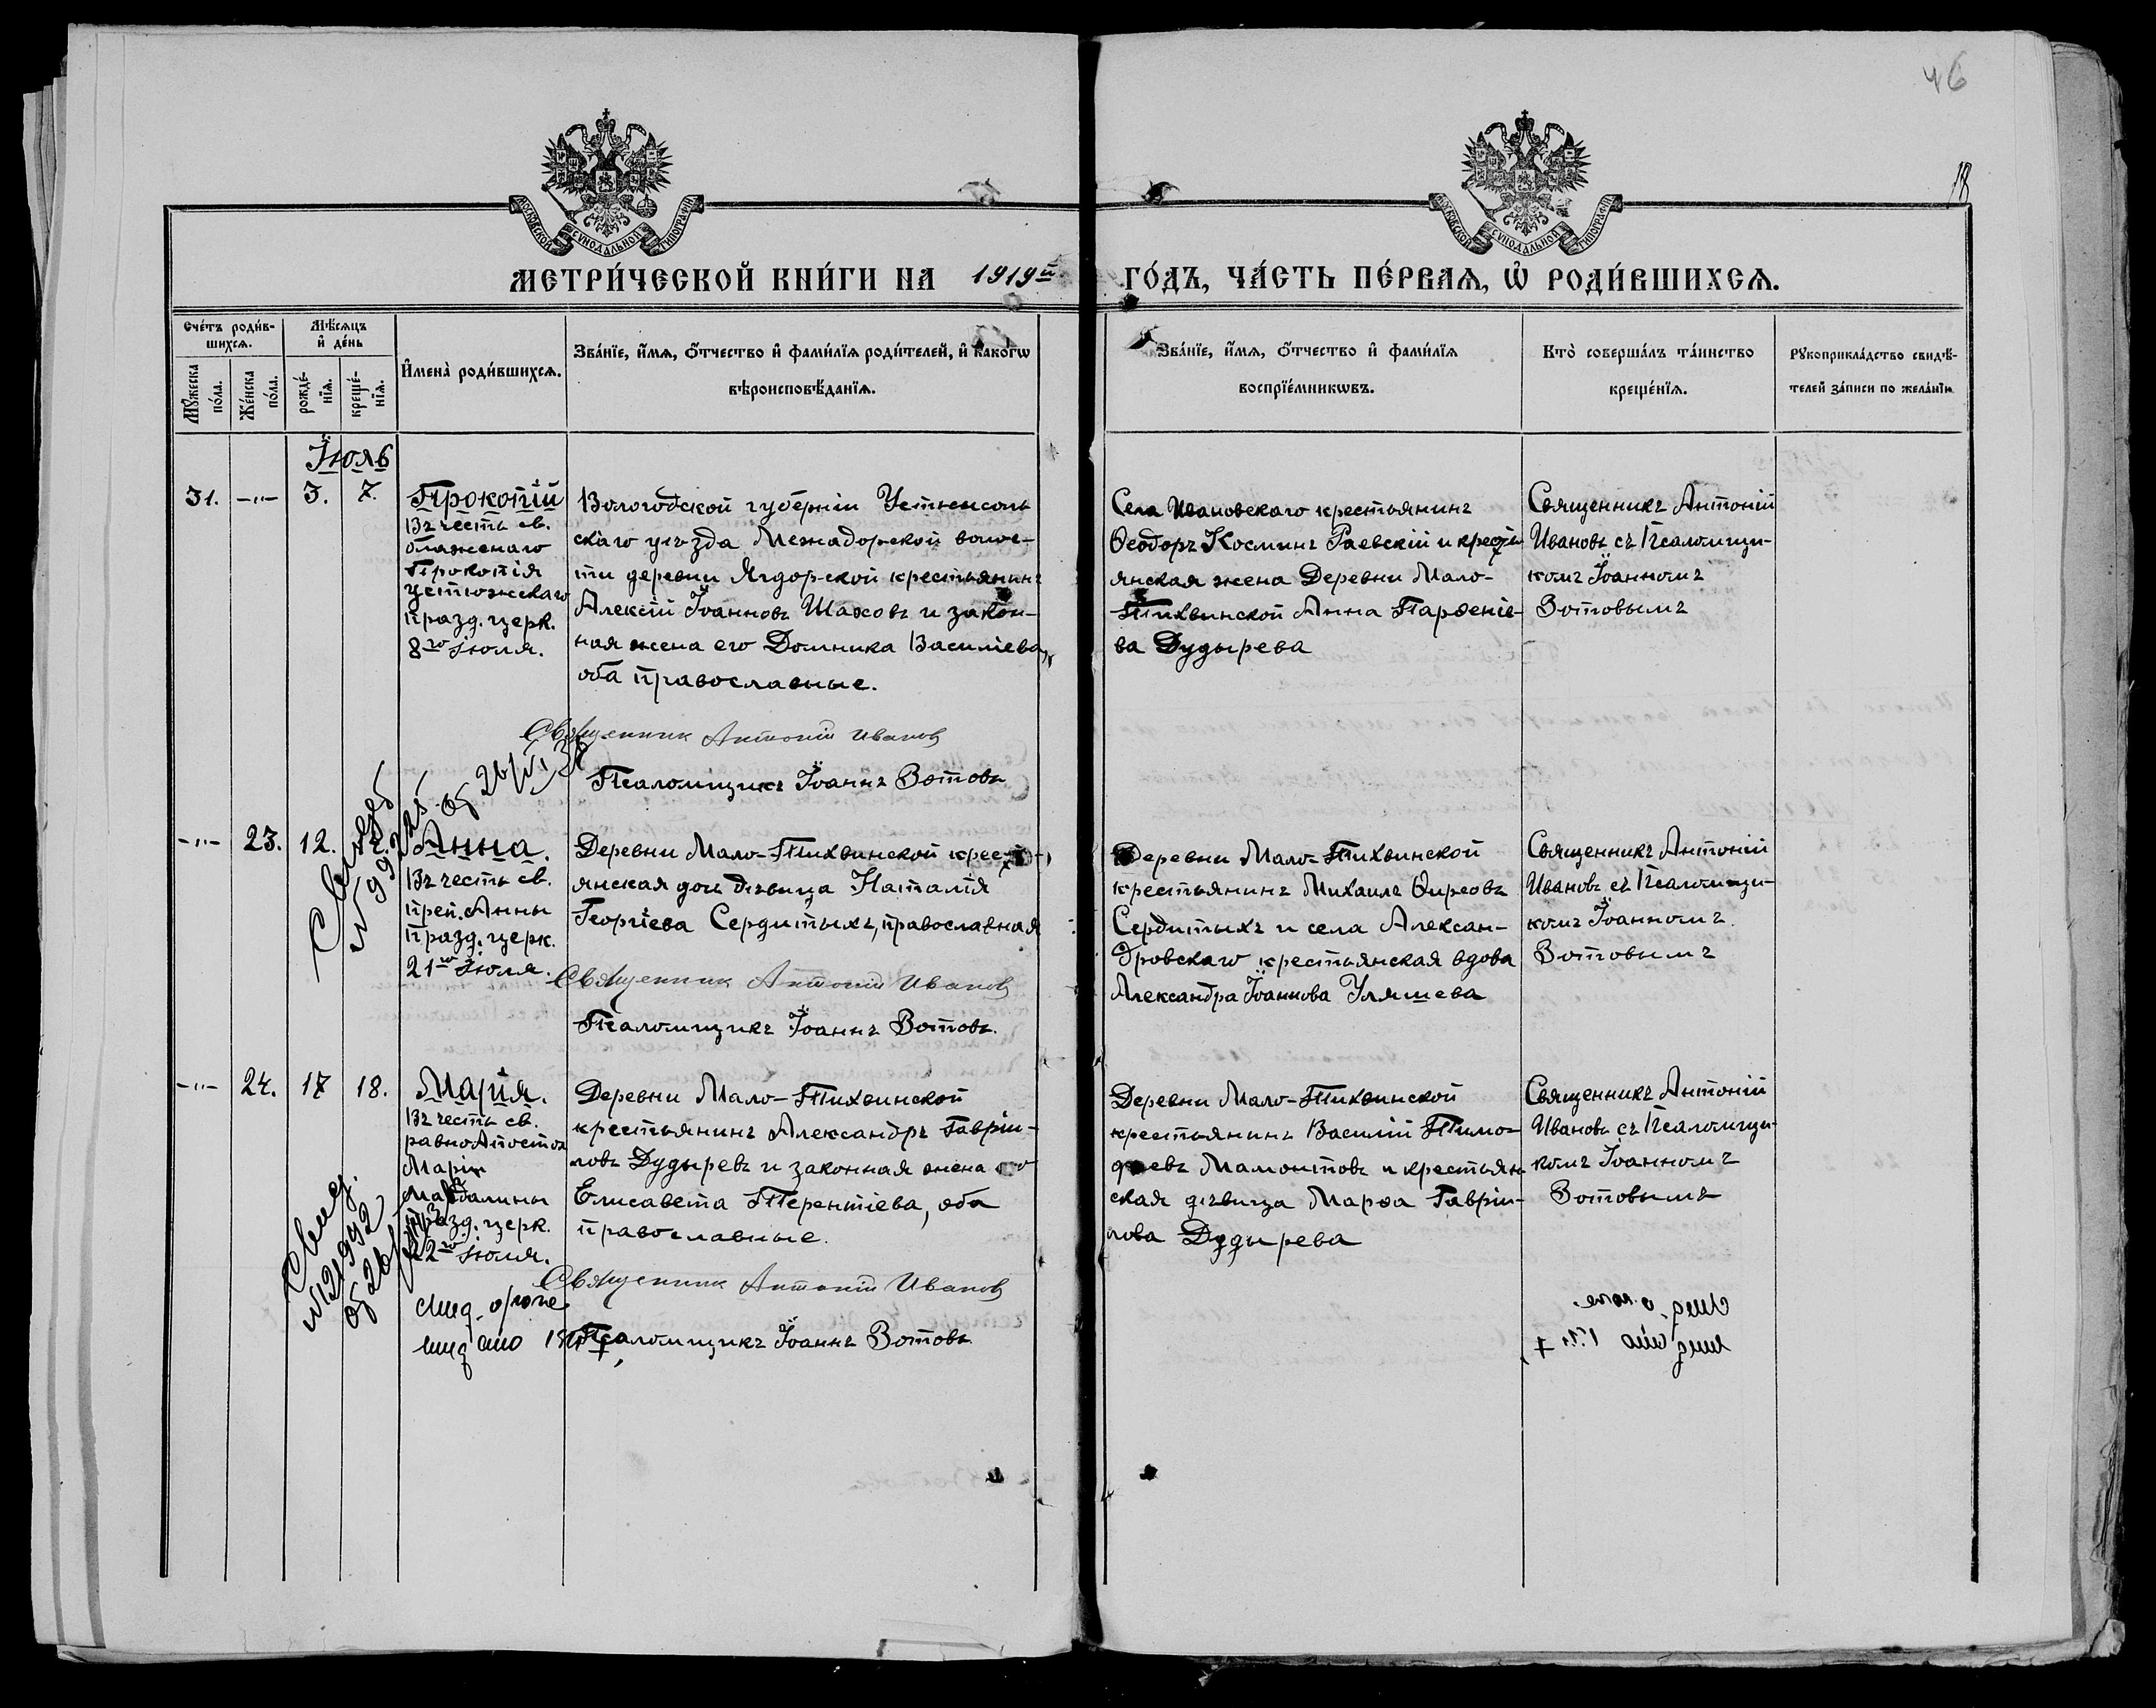 46
18
МОСКОВСКОЙ СѴНОДАЛЬНОЙ ТИПОГРАФІИ
МОСКОВСКОЙ СѴНОДАЛЬНОЙ ТИПОГРАФІИ
МЕТРИ́ЧЕСКОЙ КНИ́ГИ НА 1919й ГО́ДЪ, ЧА́СТЬ ПЕ́РВАѦ, Ѡ҆ РОДИ́ВШИХСѦ.
Сче́тъ роди́в-
шихсѧ.
Мѣ́сѧцъ
и҆ де́нь
Мꙋ́жеска
по́ла.
Же́нска
по́ла.
рожде́-
нїѧ.
креще́-
нїѧ.
И҆мена̀ роди́вшихсѧ.
Зва́нїе, и҆́мѧ, ѻ҆́тчество и҆ фами́лїѧ роди́телей, и҆ како́гѡ
вѣроисповѣ́данїѧ.
Зва́нїе, и҆́мѧ, ѻ҆́тчество и҆ фами́лїѧ
воспрїе́мникѡвъ.
Кто̀ соверша́лъ та́инство
креще́нїѧ.
Рꙋкоприкла́дство свидѣ́-
телей за́писи по жела́нїю
Іюль
31. -"- 3. 7.
Прокопій
Въ честь св.
блаженаго
Прокопія
Устюжскаго
празд. церк.
8го Іюля.
Вологодской губерніи Устьсысоль
скаго уѣзда Межадорской волос-
ти деревни Ягдорской крестьянинъ
Алексій Іоанновъ Шаховъ и закон-
ная жена его Домника Василіева,
оба православные.
Священник Антоній Иванов
Псаломщикъ Іоаннъ Зотовъ
Села Ивановскаго крестьянинъ
Ѳеодоръ Космичъ Раевскій и кресть-
янская жена Деревни Мало-
Тихвинской Анна Парѳеніе-
ва Дудырева
Священникъ Антоній
Ивановъ съ Псаломщи-
комъ Іоанномъ
Зотовымъ
-"- 23. 12.
Анна.
Въ честь св.
преп. Анны
празд. церк.
21го Іюля.
Деревни Мало-Тихвинской кресть-
янская дочь дѣвица Наталія
Георгіева Сердитыхъ, православная
Священник Антоній Иванов
Псаломщикъ Іоаннъ Зотовъ.
Деревни Мало-Тихвинской
крестьянинъ Михаилъ Ѳирсовъ
Сердитыхъ и села Алексан-
дровскаго крестьянская вдова
Александра Іоаннова Уляшева
Священникъ Антоній
Ивановъ съ Псаломщи-
комъ Іоанномъ
Зотовымъ
-"- 24. 17 18.
Марія.
Въ честь св.
равноАпостол
Маріи
Магдалины
празд. церк.
22го Іюля.
Деревни Мало-Тихвинской
крестьянинъ Александръ Гаврiи-
ловъ Дудыревъ и законная жена его
Елисавета Терентіева, оба
православные.
Священник Антоній Иванов
Псаломщикъ Іоаннъ Зотовъ
Деревни Мало-Тихвинской
крестьянинъ Василій Тимо-
феевъ Мамонтовъ и крестьян
ская дѣвица Марѳа Гаврiи-
лова Дудырева
Священникъ Антоній
Ивановъ съ Псаломщи-
комъ Іоанномъ
Зотовымъ